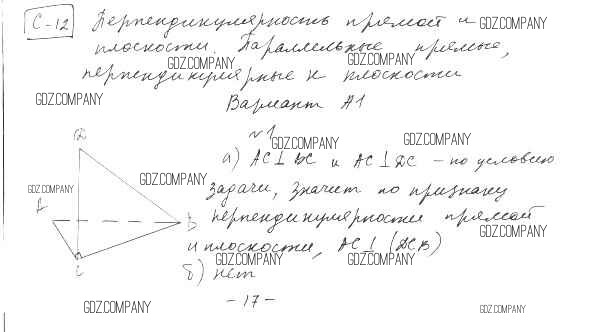 С-12 Перпендикулярность прямой и GDZ.COMPANY
плоскости. Параллельные прямые,
GDZ.COMPANY GDZ.COMPANY
перпендикулярные к плоскости
GDZ.COMPANY
Вариант А1
№1
GDZ.COMPANY GDZ.COMPANY
а) AC⊥BC и AC⊥DC – по условию
GDZ.COMPANY GDZ.COMPANY
задачи, значит по признаку
перпендикулярности прямой
GDZ.COMPANY
и плоскости, AC⊥(DCB)
GDZ.COMPANY GDZ.COMPANY
б) нет
D
A
B
C
– 17 –
GDZ.COMPANY GDZ.COMPANY